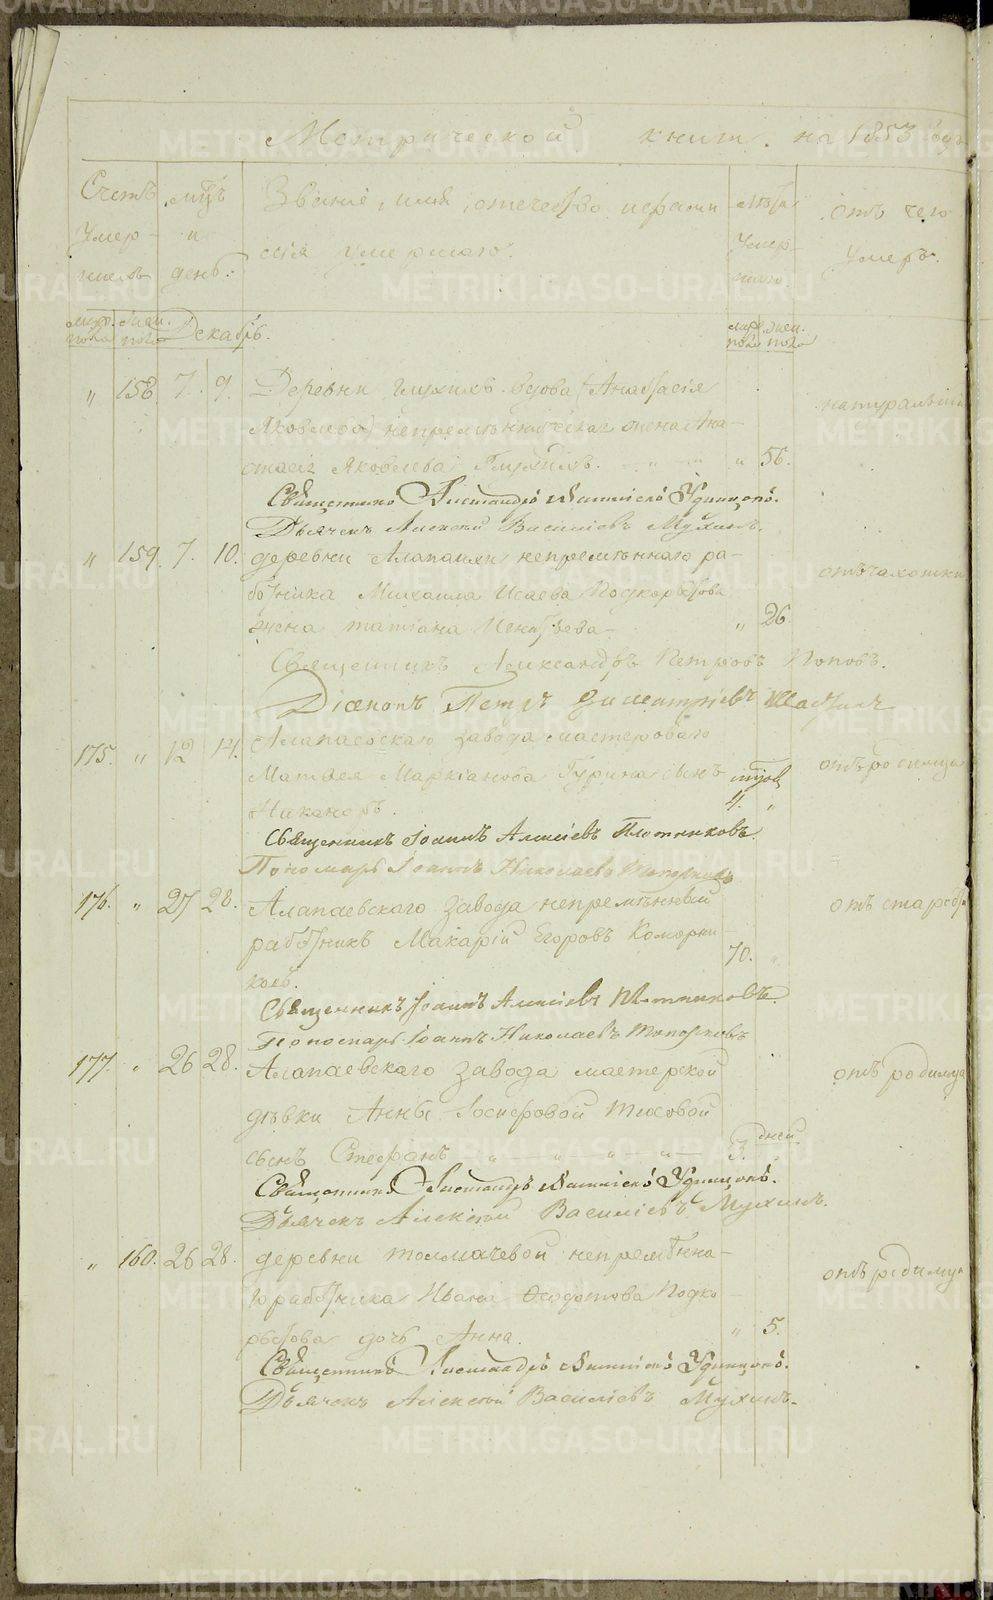 Метрической книги на 1853 годъ
Счетъ умершихъ
мцъ и день.
Званіе, имя, отечество и фамилія умершаго.
лѣта умершаго
отъ чего умеръ.
муж. пола
жен. пола
Декабрь.
муж. пола
жен. пола
" 158. 7. 9. Деревни Глухихъ вдова (Анастасія
Яковлева) непремѣннической жена Ана-
стасія Яковлева Глухихъ. " " 56. натуральной
Священникъ Александръ Удинцовъ.
Дьячекъ Алексѣй Васильевъ Мухинъ.
" 159. 7. 10. деревни Алапаихи непремѣннаго ра-
ботника Михаила Исаева Подкорытова
жена Татіана Игнатьева " 26 отъ чахотки
Священникъ Александръ Петровъ Поповъ.
Діаконъ Петръ Димитріевъ
175. " 12 14. Алапаевскаго завода мастероваго
Матвея Маркіанова Гурина сынъ
Никаноръ. 4. " отъ родимца
Священникъ Іоаннъ Алексіевъ Плотниковъ
Пономарь Іоаннъ Николаевъ Топорковъ
176. " 27 28. Алапаевскаго завода непремѣнный
работникъ Макарій Егоровъ Коморни-
ковъ. 70. " отъ старости
Священникъ Іоаннъ Алексіевъ Плотниковъ.
Пономарь Іоаннъ Николаевъ Топорковъ
177. " 26 28. Алапаевскаго завода мастерской
дѣвки Анны Іосифовой Тиховой
сынъ Стефанъ " " " 3. дней отъ родимца
Священникъ Александръ Удинцовъ.
Дьячекъ Алексѣй Васильевъ Мухинъ.
" 160. 26 28. деревни Толмачевой непремѣнна-
го работника Ивана Ѳеодотова Подко-
рытова дочь Анна. " 5. отъ родимца
Священникъ Александръ Удинцовъ.
Дьячекъ Алексѣй Васильевъ Мухинъ.
METRIKI.GASO-URAL.RU